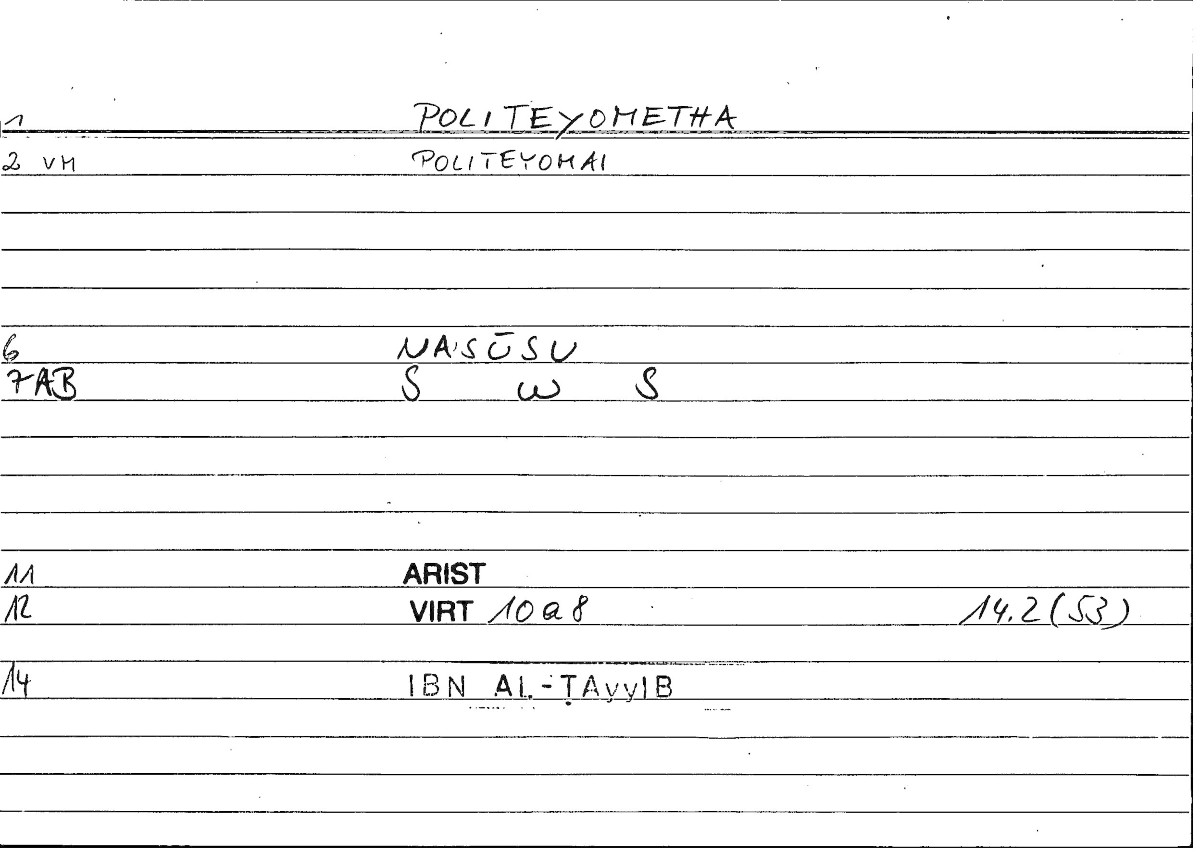 1 POLITEYOMETHA
2 VM POLITEYOMAI
6 NASŪSU
7AB S W S
11 ARIST
12 VIRT 10a8 14.2(53)
14 IBN AL-ṬAyyIB